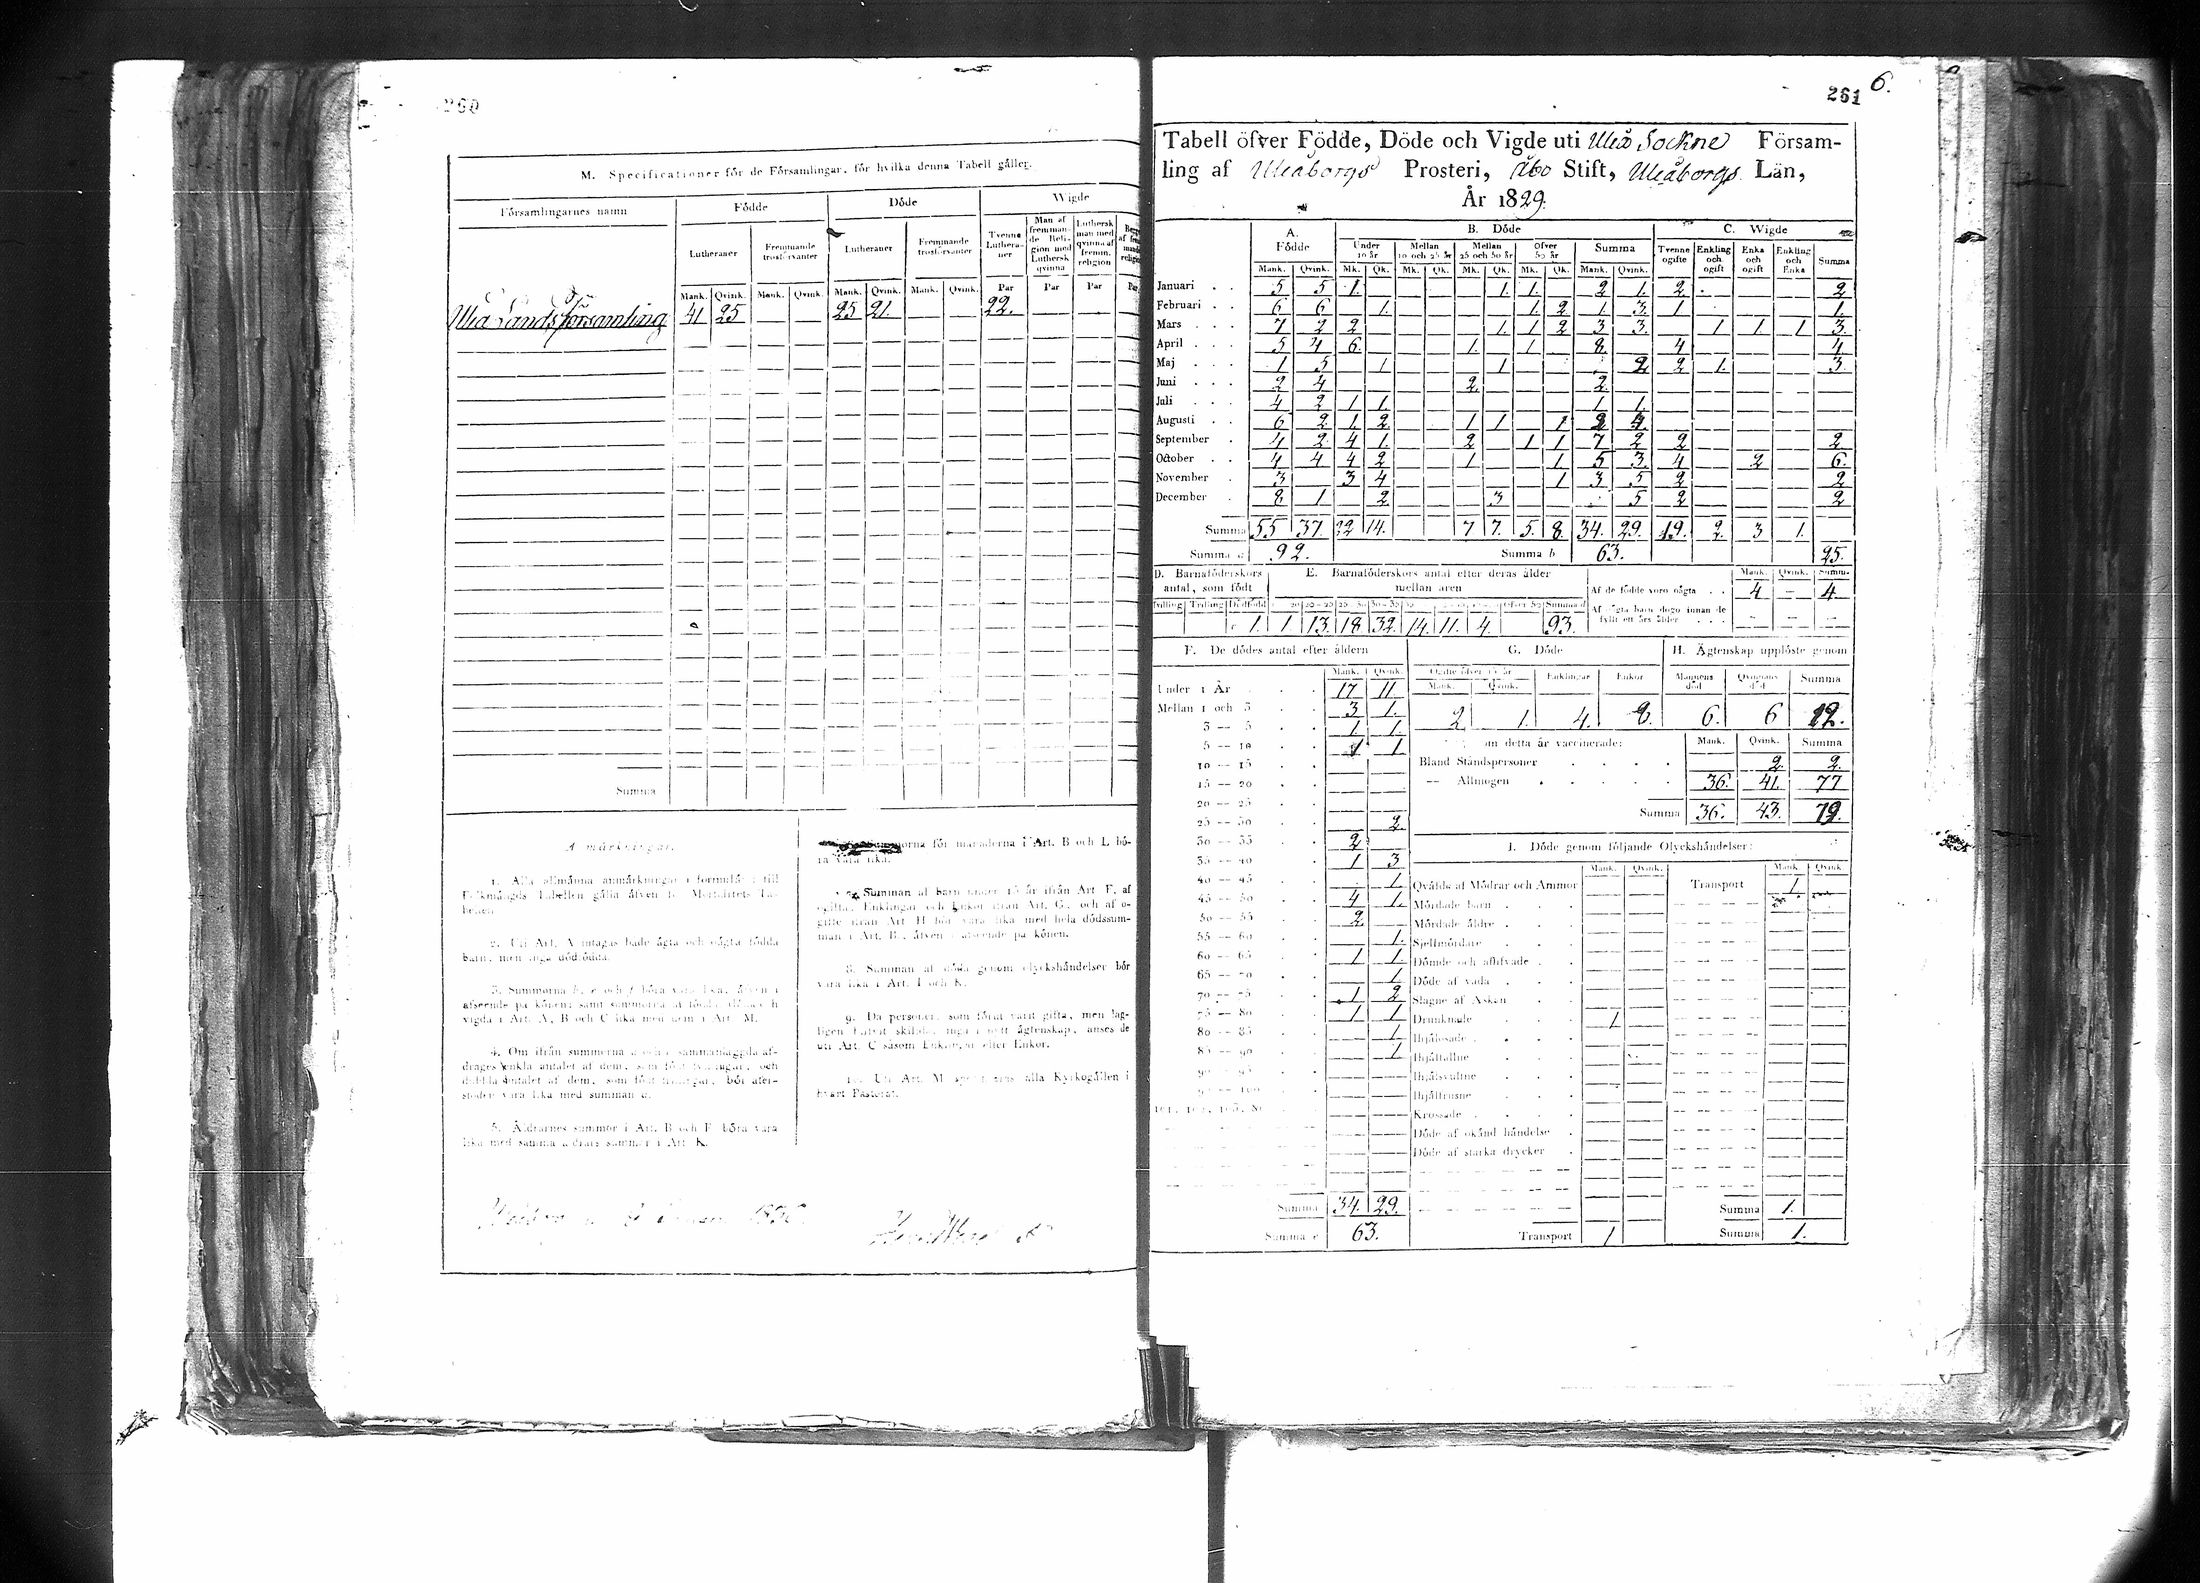 260
M. Specificationer för de Församlingar, för hvilka denna Tabell gäller.
Församlingarnes namn
Födde
Döde
Wigde
Lutheraner
Fremmande trosförvanter
Lutheraner
Fremmande trosförvanter
Tvenne Lutheraner
Man af fremmande Religion med Luthersk qvinna
Luthersk man med qvinna af fremm. religion
Mank. Qvink. Mank. Qvink. Mank. Qvink. Mank. Qvink. Par Par Par Par
Uleå Landsförsamling 41 25 25 21. 22.
Summa
Anmärkningar.
1. Alla allmänna anmärkningar i formulär till
Folkmängds Tabellen gälla äfven för Mortalitets Tabellen
2. Uti Art. A intagas både ägta och oägta födda
barn, men inga dödfödda.
3. Summorna b, e och f böra vara lika, äfven i
afseende på könen; samt summorna af födda, döde och
vigda i Art. A, B och C lika med dem i Art. M.
4. Om ifrån summorna
5. Åldrarnes summor i Art. B och F böra vara
lika med samma åldrars summor i Art. K.
Summorna för månaderna i Art. B och L böra vara lika.
7. Summan af barn under 15 år ifrån Art. F, af
ogifta, Enklingar och Enkor ifrån Art. G, och af ogifte ifrån Art H bör vara lika med hela dödssumman i Art. B, äfven i afseende på könen.
8. Summan af döda genom olyckshändelser bör
vara lika i Art. I och K.
9. Da personer, som förut varit gifta, men lagligen blifvit skilda, ingå i nytt ägtenskap, anses de
uti Art. C såsom Enklingar eller Enkor.
10. Uti Art. M specificeras alla Kyrkogällen i
hvart Pastorat.
261
6.
Tabell öfver Födde, Döde och Vigde uti Uleå Sockne Församling af Uleåborgs Prosteri, Åbo Stift, Uleåborgs Län,
År 1829.
A. Födde
B. Döde
C. Wigde
Under 10 år
Mellan 10 och 25 år
Mellan 25 och 50 år
Öfver 50 år
Summa
Tvenne ogifte
Enkling och ogift
Enka och ogift
Enkling och Enka
Summa
Mank. Qvink. Mk. Qk. Mk. Qk. Mk. Qk. Mk. Qk. Mank. Qvink.
Januari 5 5 1. 1. 1. 2 1. 2. 2
Februari 6 6 1. 1. 2 1 3. 1 1.
Mars 7 2 2 1 1 2 3 3. 1 1 1 3.
April 5 4 6. 1. 1 8. 4 4
Maj 1 5 1 1 2 2 1. 3.
Juni 2 4 2. 2.
Juli 4 2 1 1 1 1.
Augusti 6 2 1. 2. 1 1 1 2 4.
September 4 2 4 1. 2 1 1 7 2 2 2
October 4 4 4 2 1 1. 5 3. 4 2 6.
November 3 3 4 1 3 5 2 2
December 8 1 2 3 5 2 2
Summa 55 37. 22 14. 7 7. 5. 8. 34. 29. 19. 2. 3 1.
Summa a 92. Summa b 63. 25.
D. Barnaföderskors antal, som födt
E. Barnaföderskors antal efter deras ålder mellan åren
Mank. Qvink. Summa
Af de födde voro oägta 4 — 4
Af oägta barn dogo innan de fyllt ett års ålder — — —
Tvilling Trilling Dödfödt
1. 1 13. 18. 32. 14. 11. 4. 93.
F. De dödes antal efter åldern
Mank. Qvink.
Under 1 År 17 11
Mellan 1 och 3 3 1.
3 — 5 1 1.
5 — 10 1 1
10 — 15
15 — 20
20 — 25
25 — 30 2.
30 — 35 2
35 — 40 1 3
40 — 45 1.
45 — 50 4 1.
50 — 55 2
55 — 60 1.
60 — 65 1 1.
65 — 70 1
70 — 75 1 2
75 — 80 1 1
80 — 85 1
85 — 90 1
Summa 34. 29.
Summa e 63.
G. Döde
Ogifte öfver 15 år
Mank. Qvink.
Enklingar
Enkor
2 1. 4. 8.
H. Ägtenskap upplöste genom
Mannens död
Qvinnans död
Summa
6. 6 12.
om detta år vaccinerade:
Mank. Qvink. Summa
Bland Ståndspersoner 2. 2.
— Allmogen 36. 41. 77
Summa 36. 43. 79.
I. Döde genom följande Olyckshändelser:
Mank. Qvink. Mank. Qvink.
Qväfde af Mödrar och Ammor
Transport 1
Mördade barn
Mördade äldre
Sjelfmördare
Dömde och aflifvade
Döde af våda
Slagne af Åskan
Drunknade 1
Ihjälosade
Ihjälfallne
Ihjälsvultne
Ihjälfrusne
Krossade
Döde af okänd händelse
Döde af starka drycker
Transport 1
Summa 1.
Summa 1.